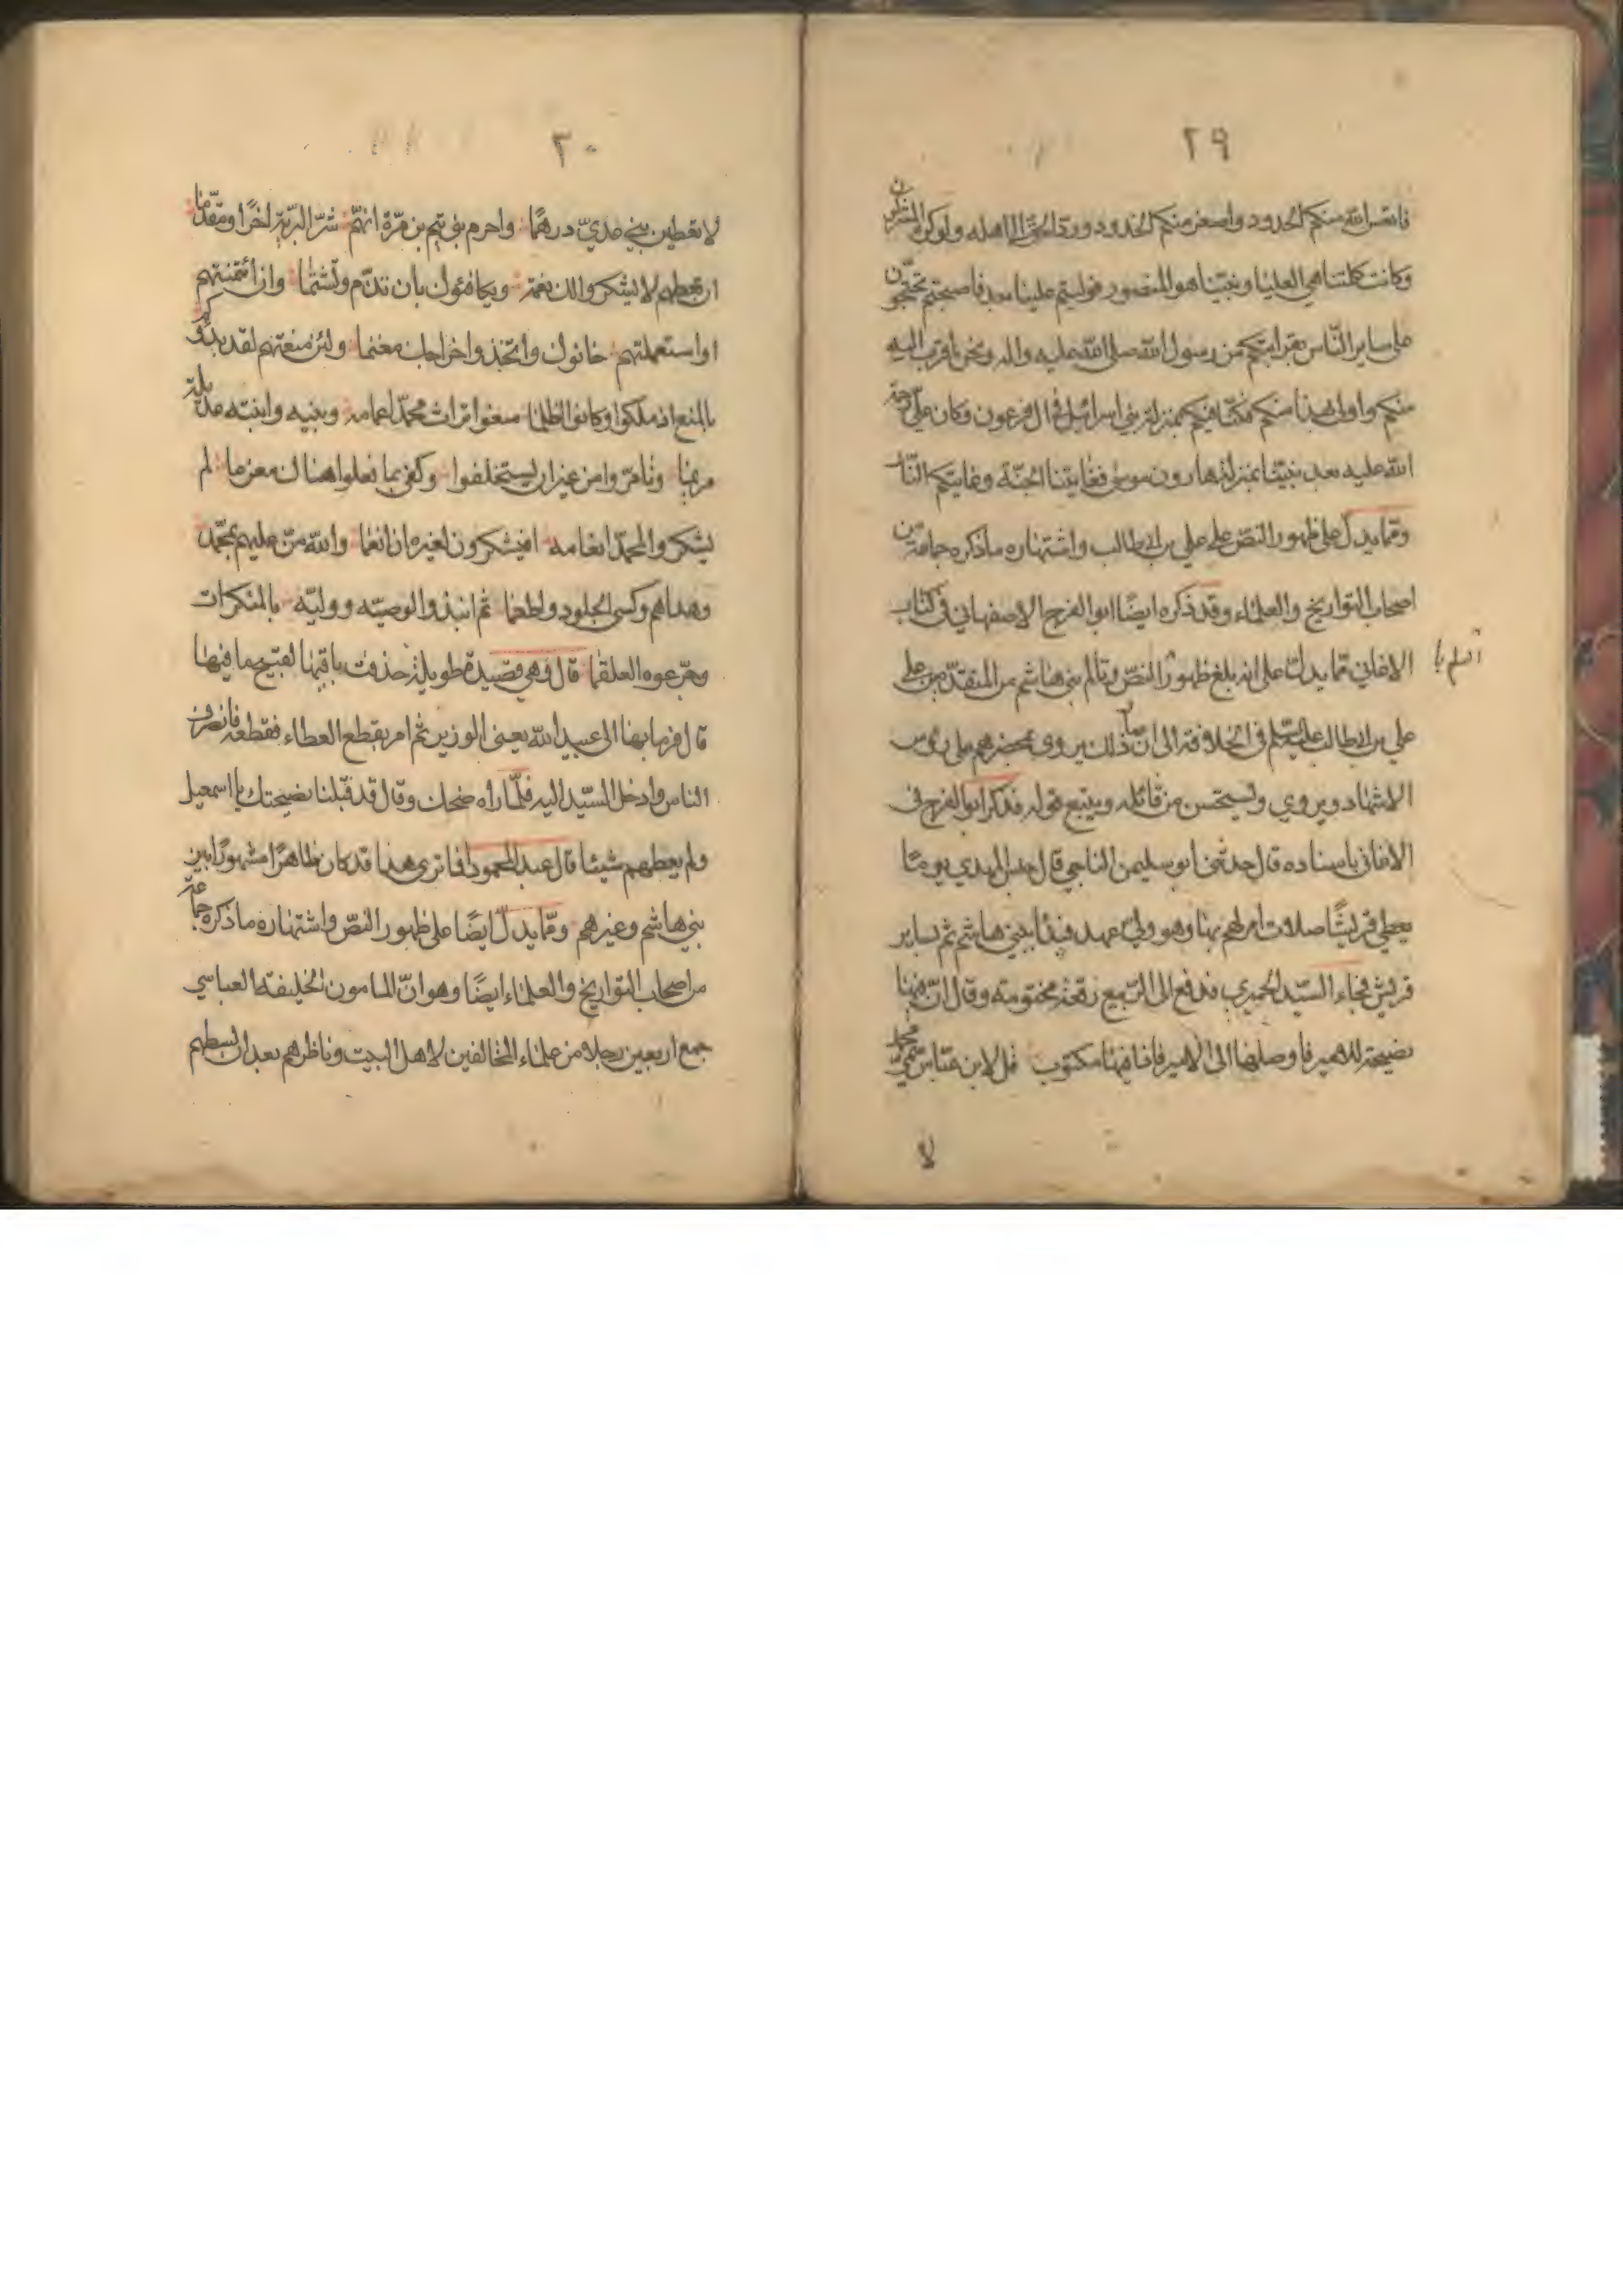 ٢٩
فاتعس الله منكم الجدود واصعر منكم الخدود ورد الحق الى اهله ولو كره المشركون
وكانت كلمتنا هي العليا ونبينا هو المنصور فوليتم علينا بعد فاصبحتم تحتجون
على ساير الناس بقرابتكم من رسول الله صلى الله عليه واله ونحن اقرب اليه
منكم واولى بهذا منكم فكنا فيكم بمنزلة بني اسرائيل في ال فرعون وكان علي رحمة
الله عليه بعد نبينا بمنزلة هارون من موسى فغايتنا الجنة وغايتكم النار
ومما يدل على ظهور النص على علي بن ابي طالب واشتهاره ما ذكره جماعة من
اصحاب التواريخ والعلماء وقد ذكره ايضًا ابو الفرج الاصفهاني في كتاب
الاغاني مما يدل على انه بلغ ظهور النص وتالم بني هاشم من المتقدمين على
علي بن ابي طالب عليه السلم في الخلافة الى ان ذلك يروى بمحضرهم على رؤس
الاشهاد ويروي ويستحسن من قائله ويتبع قوله فذكر ابو الفرج في
الاغاني باسناده قال حدثني ابو سليمن الناجي قال جلس المهدي يومًا
يعطي قريشًا صلات امر لهم بها وهو ولي عهد فبدأ ببني هاشم ثم بساير
قريش فجاء السيد الحميري فدفع الى الربيع رقعة مختومة وقال ان فيها
نصيحة للامير فاوصلها الى الامير فاذا فيها مكتوب قل لابن عباس سمي محمد
لا
٣٠
لا تعطين بني عدي درهما واحرم بني تيم بن مرة انهم شر البرية اخرًا ومقدما
ان تعطهم لا يشكروا لك نعمة ويكافئوك بان تذم وتشتما وان ائتمنتهم
او استعملتهم خانوك واتخذوا خراجك مغنما ولئن منعتهم لقد بدؤكم
بالمنع اذ ملكوا وكانوا اظلما منعوا تراث محمد اعمامه وبنيه وابنته عديلة
مريما وتامروا من غير ان يستخلفوا وكفى بما فعلوا هنالك مغرما لم
يشكروا لمحمد انعامه افيشكرون لغيره ان انعما والله من عليهم بمحمد
وهداهم وكسى الجلود واطعما ثم انبذوا لوصيه ووليه بالمنكرات
وجرعوه العلقما قال وهي قصيدة طويلة حذفت باقيها لقبيح ما فيها
قال فرمى بها الى عبيد الله يعني الوزير ثم امر بقطع العطاء فقطعه فانصرف
الناس وادخل السيد اليه فلما راه ضحك وقال قد قبلنا نصيحتك يا اسمعيل
ولم يعطهم شيئا قال عبد المحمود افاترى هذا قد كان ظاهرًا مشهورًا بين
بني هاشم وغيرهم ومما يدل ايضًا على ظهور النص واشتهاره ما ذكره جماعة
من اصحاب التواريخ والعلماء ايضًا وهو ان المامون الخليفة العباسي
جمع اربعين رجلا من علماء المخالفين لاهل البيت وناظرهم بعد ان بسطهم